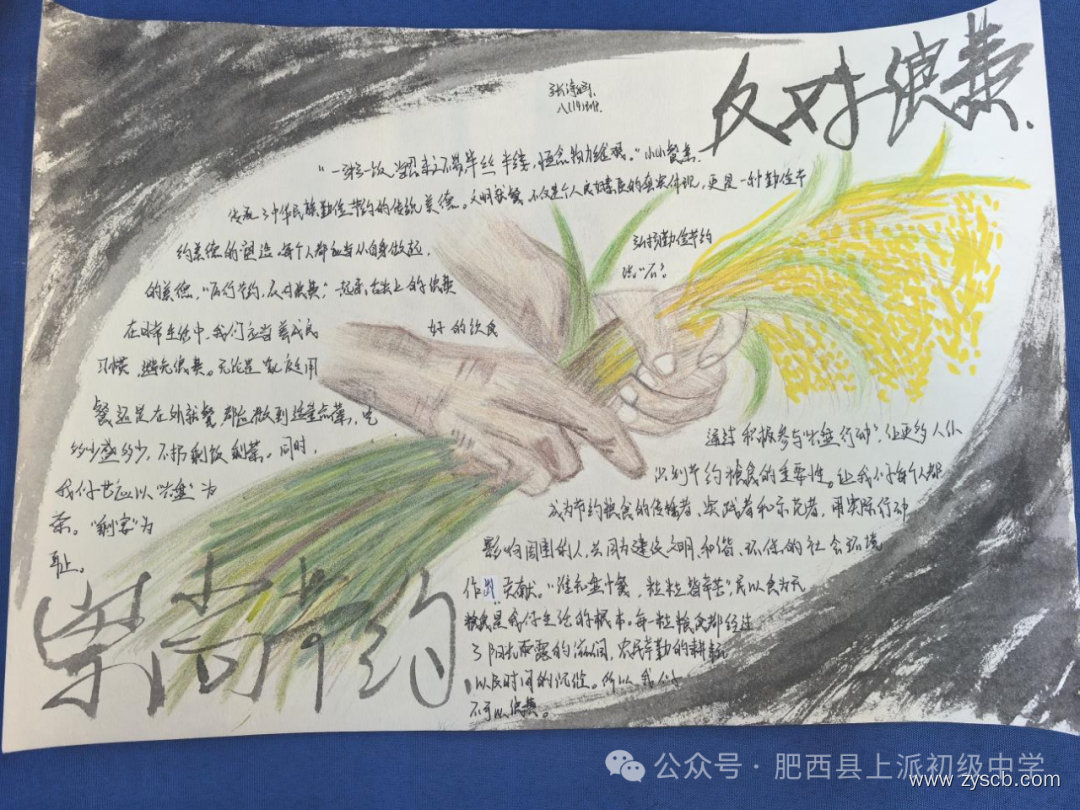 反对浪费
"一粥一饭,当思来之不易,半丝半缕,恒念物力维艰。"小小餐桌,
传承了中华民族勤俭节约的传统美德。文明就餐,不仅是个人良好素质的真实体现,更是一种勤俭节
约美德的塑造,每个人都应当从自身做起,
的美德,"厉行节约,反对浪费,"一起来,舌尖上的浪费
在日常生活中,我们应当养成良
好的饮食
习惯,避免浪费。无论是家庭用
餐还是在外就餐,都应做到适量点菜,
少盛,不扔剩饭剩菜。同时,
我们也应以"光盘"为
荣。"剩宴"为
耻。
崇尚节约
通过积极参与"光盘行动",让更多人认
识到节约粮食的重要性。让我们每个人都
成为节约粮食的传播者、实践者和示范者,用实际行动
影响周围的人,共同为建设文明、和谐、环保的社会环境
作出贡献。"谁知盘中餐,粒粒皆辛苦",民以食为天
粮食是我们生活的根本。每一粒粮食都经过
了阳光雨露的滋润,农民辛勤的耕耘
,以及时间的沉淀。所以我们
不可以浪费。
公众号·肥西县上派初级中学
www.zyscb.com